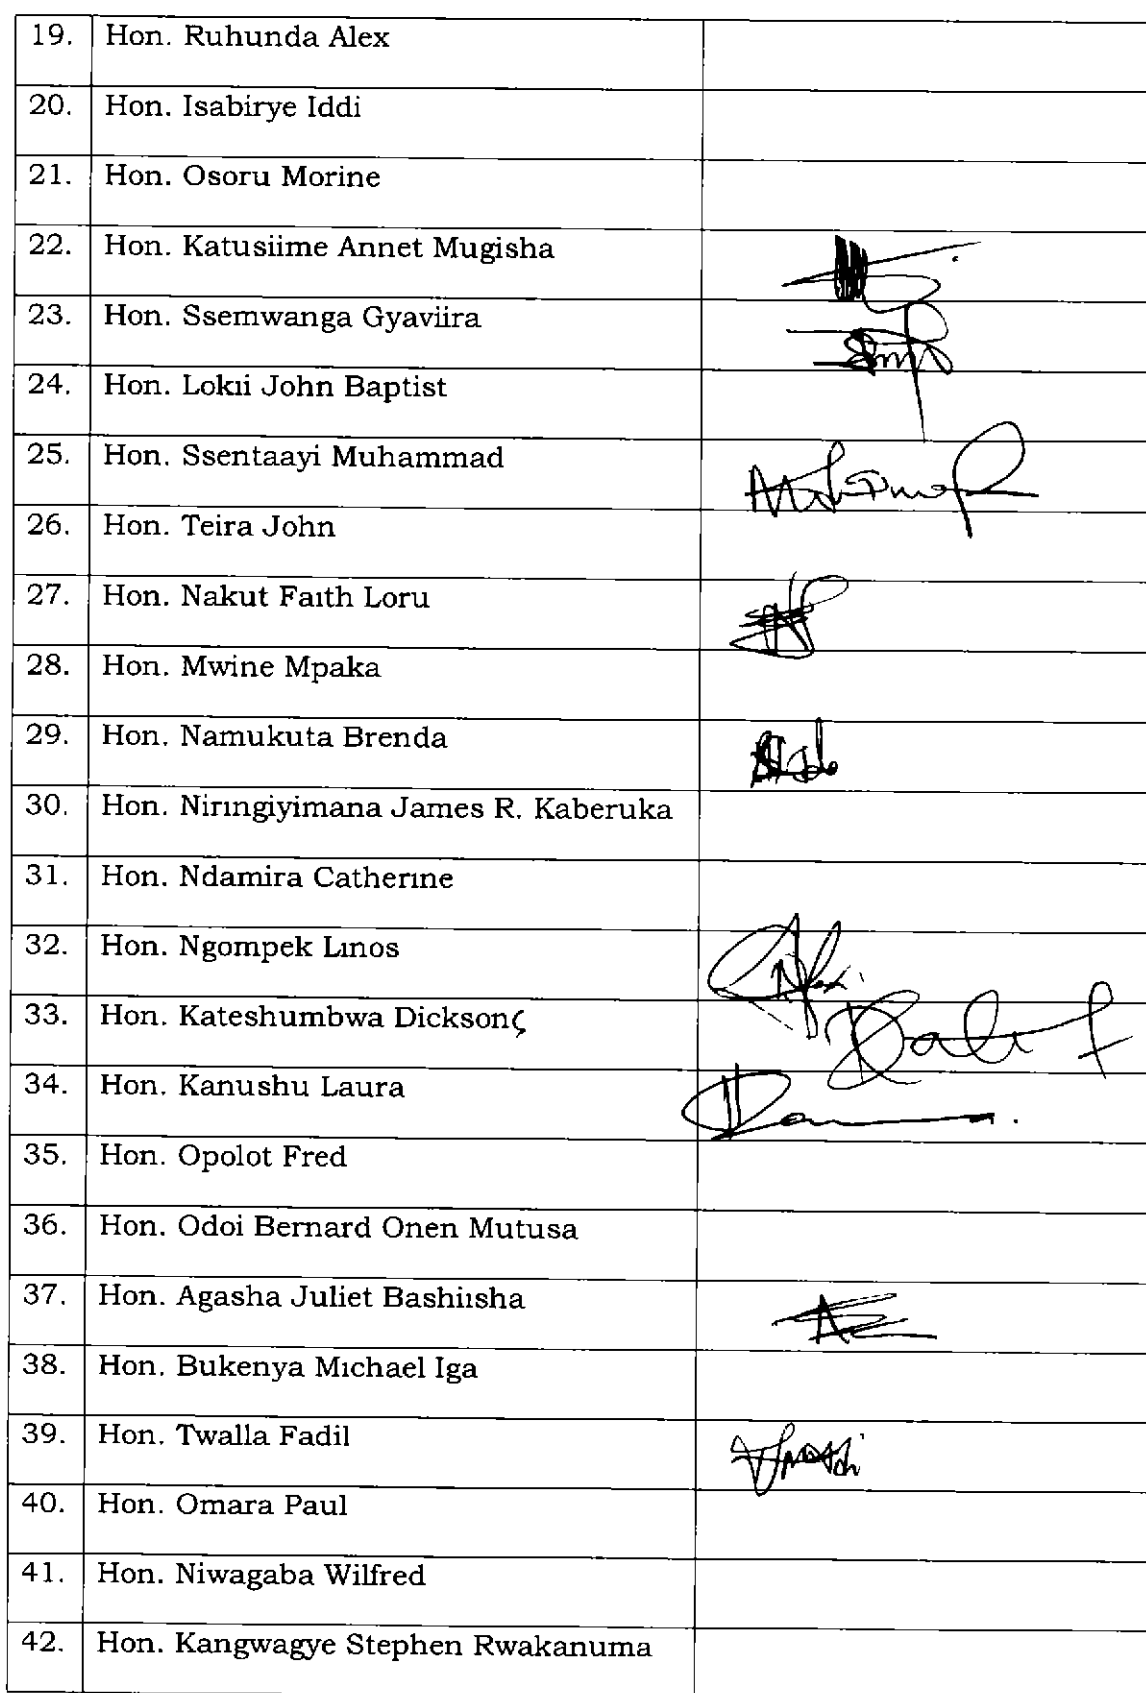 19. Hon. Ruhunda Alex
20. Hon. Isabirye Iddi
21. Hon. Osoru Morine
22. Hon. Katusiime Annet Mugisha
23. Hon. Ssemwanga Gyaviira
24. Hon. Lokii John Baptist
25. Hon. Ssentaayi Muhammad
26. Hon. Teira John
27. Hon. Nakut Faith Loru
28. Hon. Mwine Mpaka
29. Hon. Namukuta Brenda
30. Hon. Niringiyimana James R. Kaberuka
31. Hon. Ndamira Catherine
32. Hon. Ngompek Linos
33. Hon. Kateshumbwa Dickson
34. Hon. Kanushu Laura
35. Hon. Opolot Fred
36. Hon. Odoi Bernard Onen Mutusa
37. Hon. Agasha Juliet Bashiisha
38. Hon. Bukenya Michael Iga
39. Hon. Twalla Fadil
40. Hon. Omara Paul
41. Hon. Niwagaba Wilfred
42. Hon. Kangwagye Stephen Rwakanuma